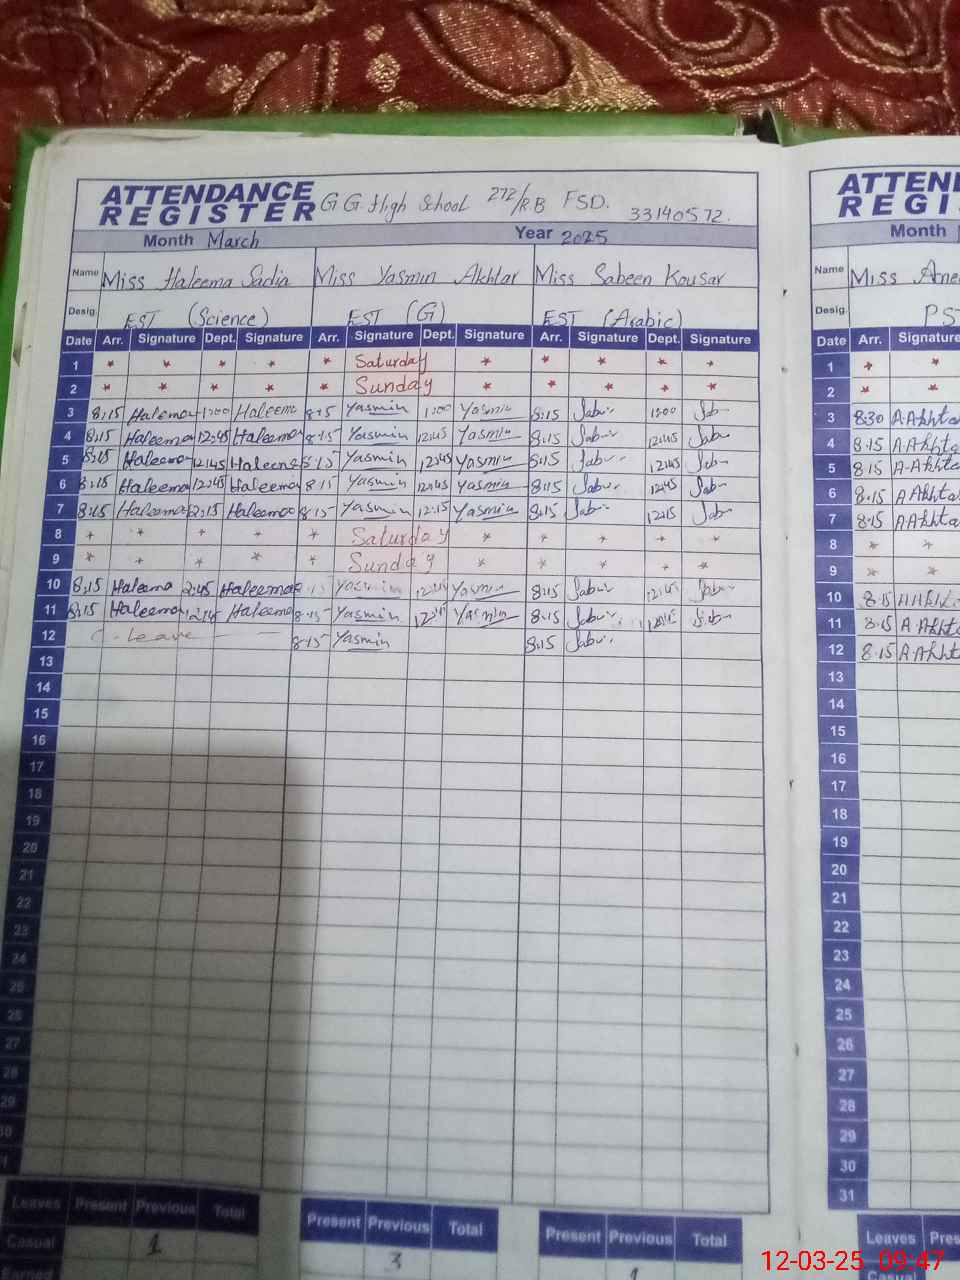 ATTENDANCE REGISTER G G. High School 272/R.B FSD. 33140572.
Month March Year 2025
Name Miss Haleema Sadia Miss Yasmin Akhtar Miss Sabeen Kousar
Desig. EST (Science) EST (G) EST (Arabic)
Date Arr. Signature Dept. Signature Arr. Signature Dept. Signature Arr. Signature Dept. Signature
1 * * * * * Saturday * * * * *
2 * * * * * Sunday * * * * *
3 8:15 Haleema 1:00 Haleema 8:15 Yasmin 1:00 Yasmin 8:15 1:00
4 8:15 Haleema 12:45 Haleema 8:15 Yasmin 12:45 Yasmin 8:15 12:45
5 8:15 Haleema 12:45 Haleema 8:15 Yasmin 12:45 Yasmin 8:15 12:45
6 8:15 Haleema 12:45 Haleema 8:15 Yasmin 12:45 Yasmin 8:15 12:45
7 8:15 Haleema 12:15 Haleema 8:15 Yasmin 12:15 Yasmin 8:15 12:15
8 * * * * * Saturday * * * * *
9 * * * * * Sunday * * * * *
10 8:15 Haleema 12:45 Haleema Yasmin 12:45 Yasmin 8:15 12:45
11 8:15 Haleema 12:45 Haleema 8:15 Yasmin 12:45 Yasmin 8:15 12:45
12 C-Leave 8:15 Yasmin 8:15
13
14
15
16
17
18
19
20
21
22
23
24
25
26
27
28
29
30
31
Leaves Present Previous Total Present Previous Total Present Previous Total
Casual 1 3 1
Earned
ATTEN
REGI
Month
Name Miss
Desig. PS
Date Arr. Signature
1 * *
2 * *
3 8:30 A.Akhta
4 8:15 A.Akhta
5 8:15 A.Akhta
6 8:15 A.Akhta
7 8:15 A.Akhta
8 * *
9 * *
10 8:15
11 8:15 A.Akhta
12 8:15 A.Akhta
13
14
15
16
17
18
19
20
21
22
23
24
25
26
27
28
29
30
31
Leaves Pres
12-03-25 09:47